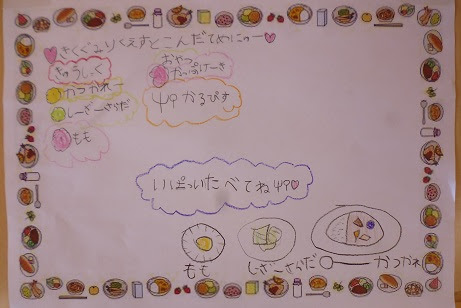 きくぐみりくえすとこんだてめにゅー
きゅうしょく
かつかれー
しーざーさらだ
もも
おやつ
かっぷけーき
かるぴす
いっぱいたべてね
もも
しーざーさらだ
かつかれー